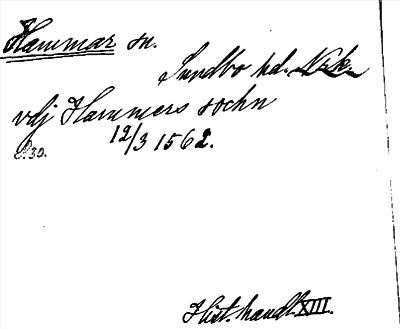 Hammar sn.
Sundbo hd. Nrk.
vdj Hammers sochn
12/3 1562.
S. 30.
Hist. handl. XIII.